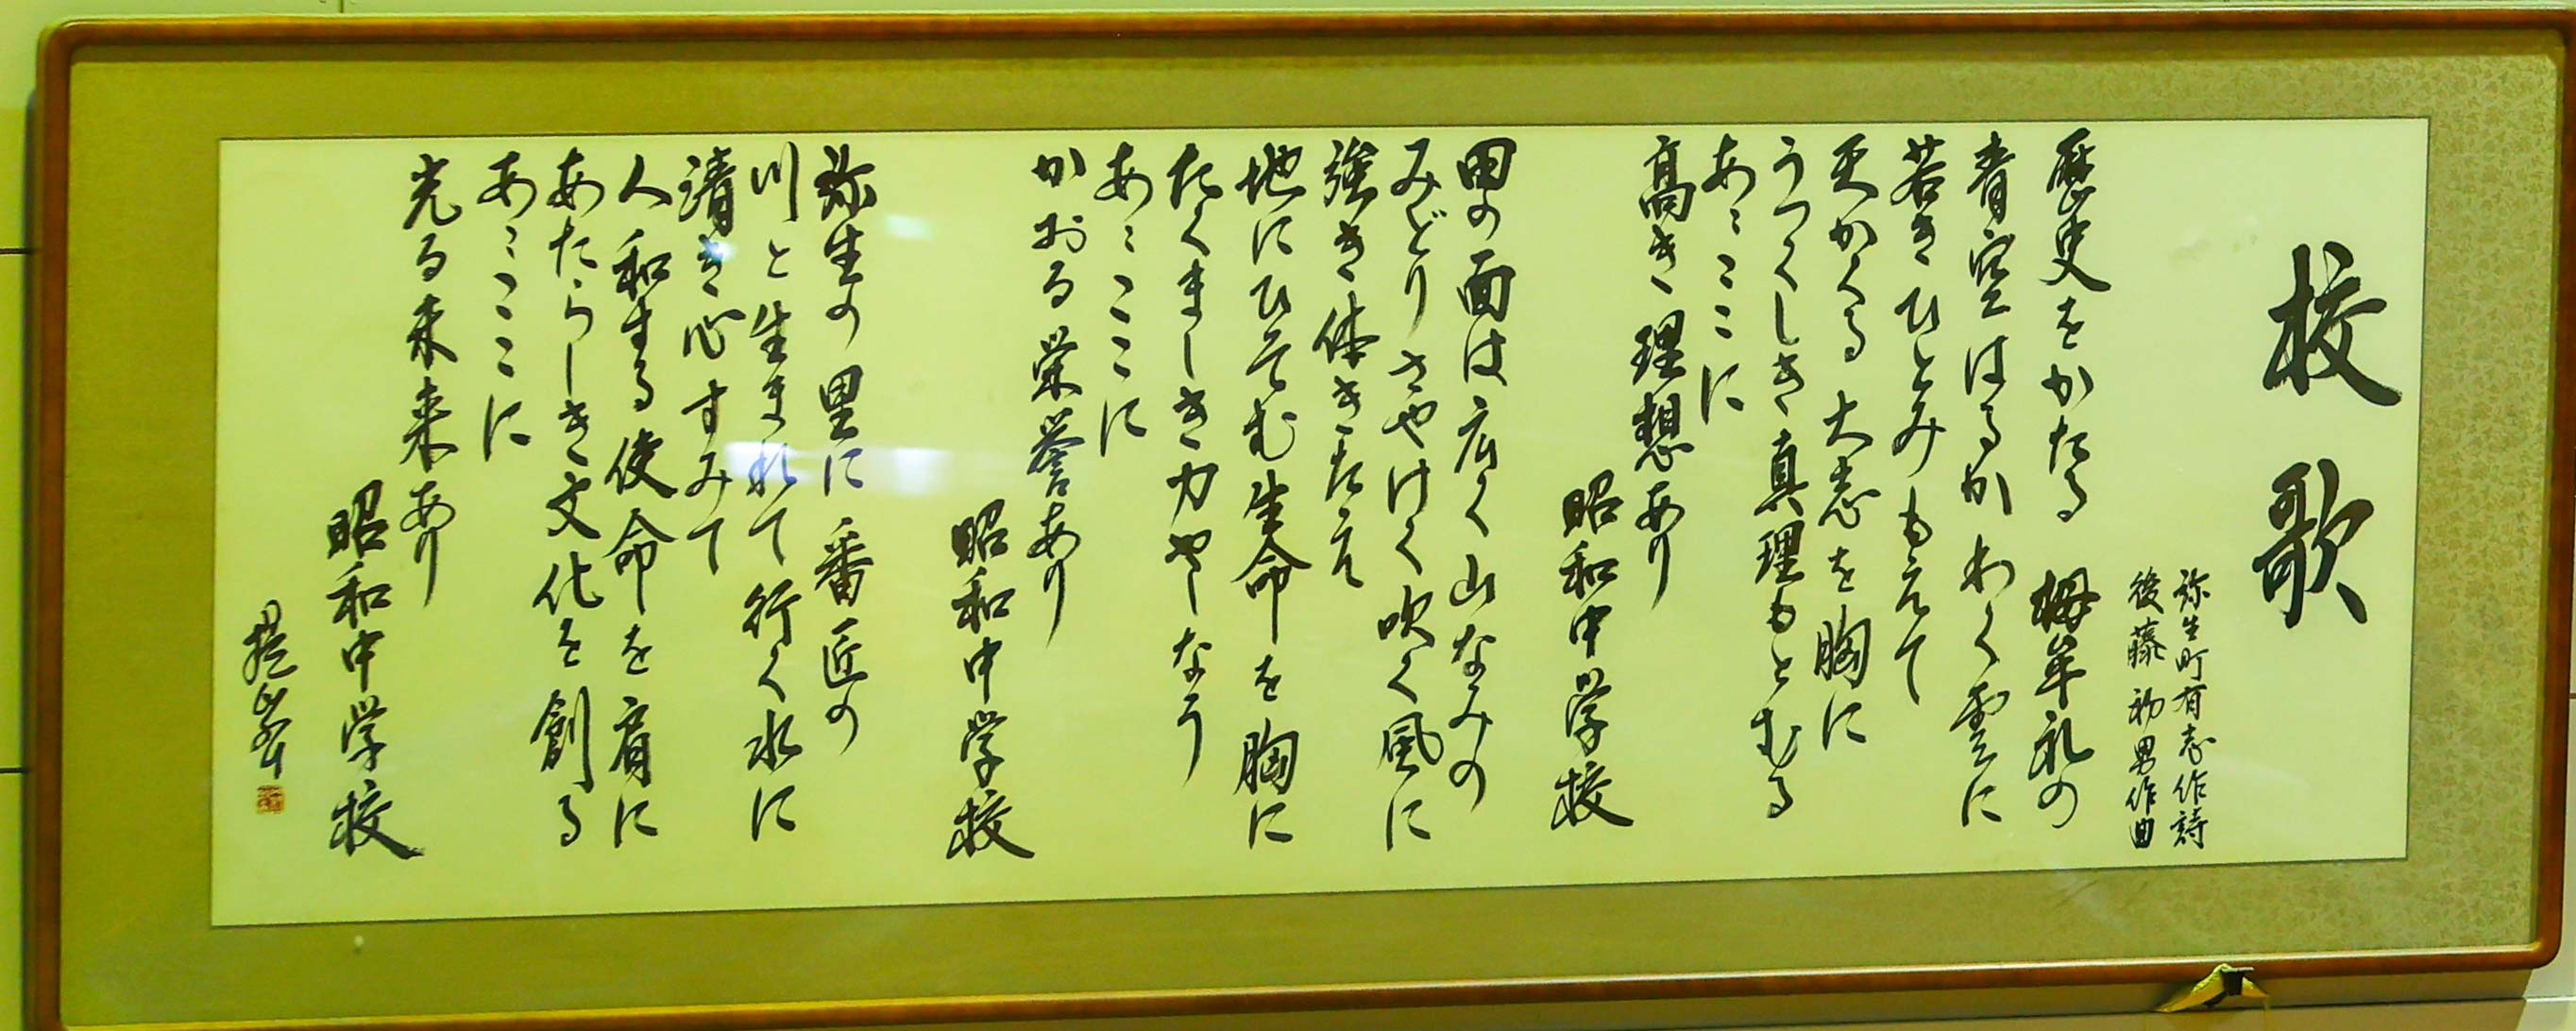 校歌
弥生町有志作詩
後藤初男作曲
歴史をかたる 栂牟礼の
青空はるかわく雲に
若きひとみもえて
天かくる 大志を胸に
うつくしき真理もとむる
あゝここに
高き理想あり
昭和中学校
田の面は広く山なみの
みどりさやけく吹く風に
強き体きたえ
地にひそむ生命を胸に
たくましき力やしなう
あゝここに
かおる栄誉あり
昭和中学校
弥生の里に番匠の
川と生まれて行く水に
清き心すみて
人和する使命を肩に
あたらしき文化を創る
あゝここに
光る未来あり
昭和中学校